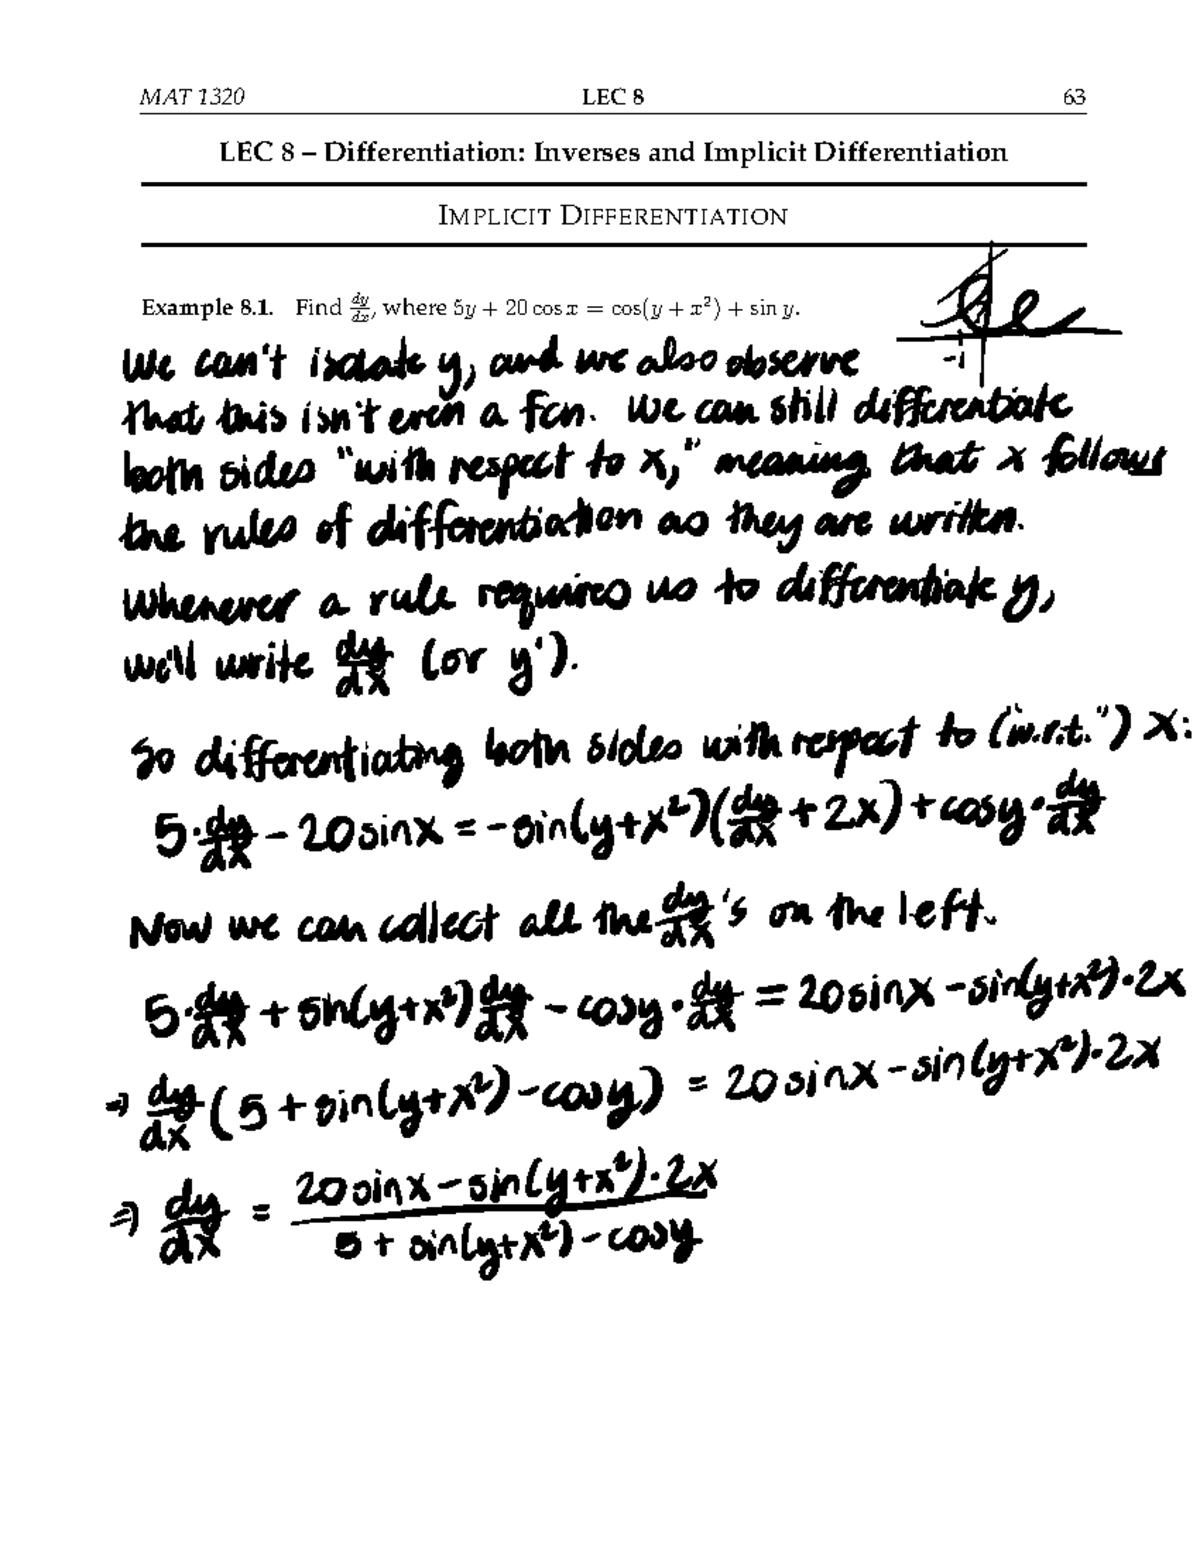 MAT 1320 LEC 8 63
LEC 8 – Differentiation: Inverses and Implicit Differentiation
IMPLICIT DIFFERENTIATION
Example 8.1. Find dy/dx, where 5y + 20 cos x = cos(y + x²) + sin y.
-1
We can't isolate y, and we also observe
that this isn't even a fcn. We can still differentiate
both sides "with respect to x," meaning that x follows
the rules of differentiation as they are written.
Whenever a rule requires us to differentiate y,
we'll write dy/dx (or y').
So differentiating both sides with respect to ("w.r.t.") x:
5·dy/dx - 20sinx = -sin(y+x²)(dy/dx + 2x) + cosy·dy/dx
Now we can collect all the dy/dx's on the left.
5·dy/dx + sin(y+x²)dy/dx - cosy·dy/dx = 20sinx - sin(y+x²)·2x
⇒ dy/dx (5 + sin(y+x²) - cosy) = 20sinx - sin(y+x²)·2x
⇒ dy/dx = (20sinx - sin(y+x²)·2x)/(5 + sin(y+x²) - cosy)